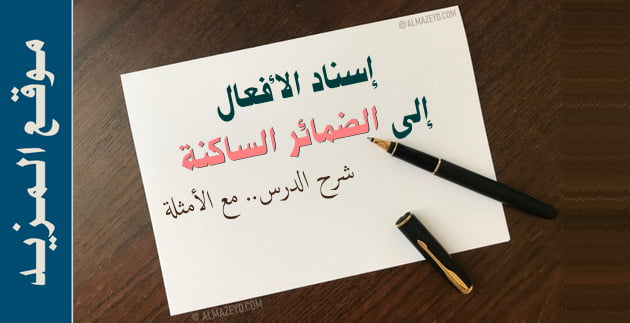 © ALMAZEYD.COM
إسناد الأفعال
إلى الضمائر الساكنة
شرح الدرس.. مع الأمثلة
موقع المزيد
© ALMAZEYD.COM